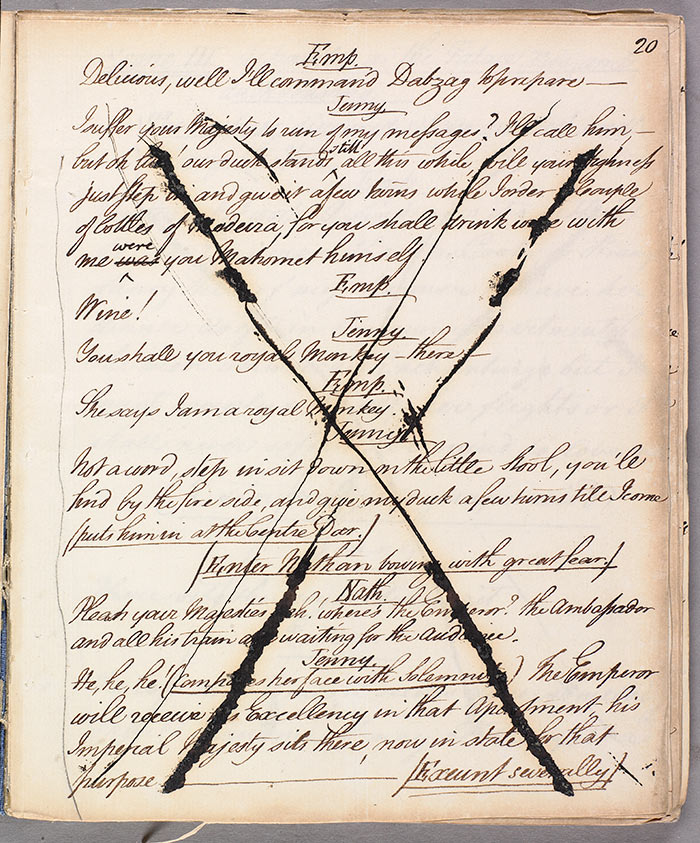 20
Emp.
Delicious, well I'll command Dabzag to prepare —
Jenny
I suffer your Majesty to run of my messages? I'll call him —
but oh our duck stands still all this while will your Highness
just step in and give it a few turns while I order a couple
of bottles of Madeira, for you shall drink wine with
me was were you Mahomet himself.
Emp.
Wine!
Jenny
You shall you royal Monkey — there —
Emp.
She says I am a royal Monkey.
Jenny
Not a word, step in sit down on the little stool, you'll
find by the fire side, and give my duck a few turns till I come
[puts him in at the Centre Door.]
[Enter Nathan bowing with great fear.]
Nath.
Pleash your Majesties where's the Emperor? the Ambassador
and all his train are waiting for the audience.
Jenny
He, he, he! (Composes her face with Solemnity) The Emperor
will receive his Excellency in that Apartment his
Imperial Majesty sits there, now in state for that
purpose — [Exeunt severally]